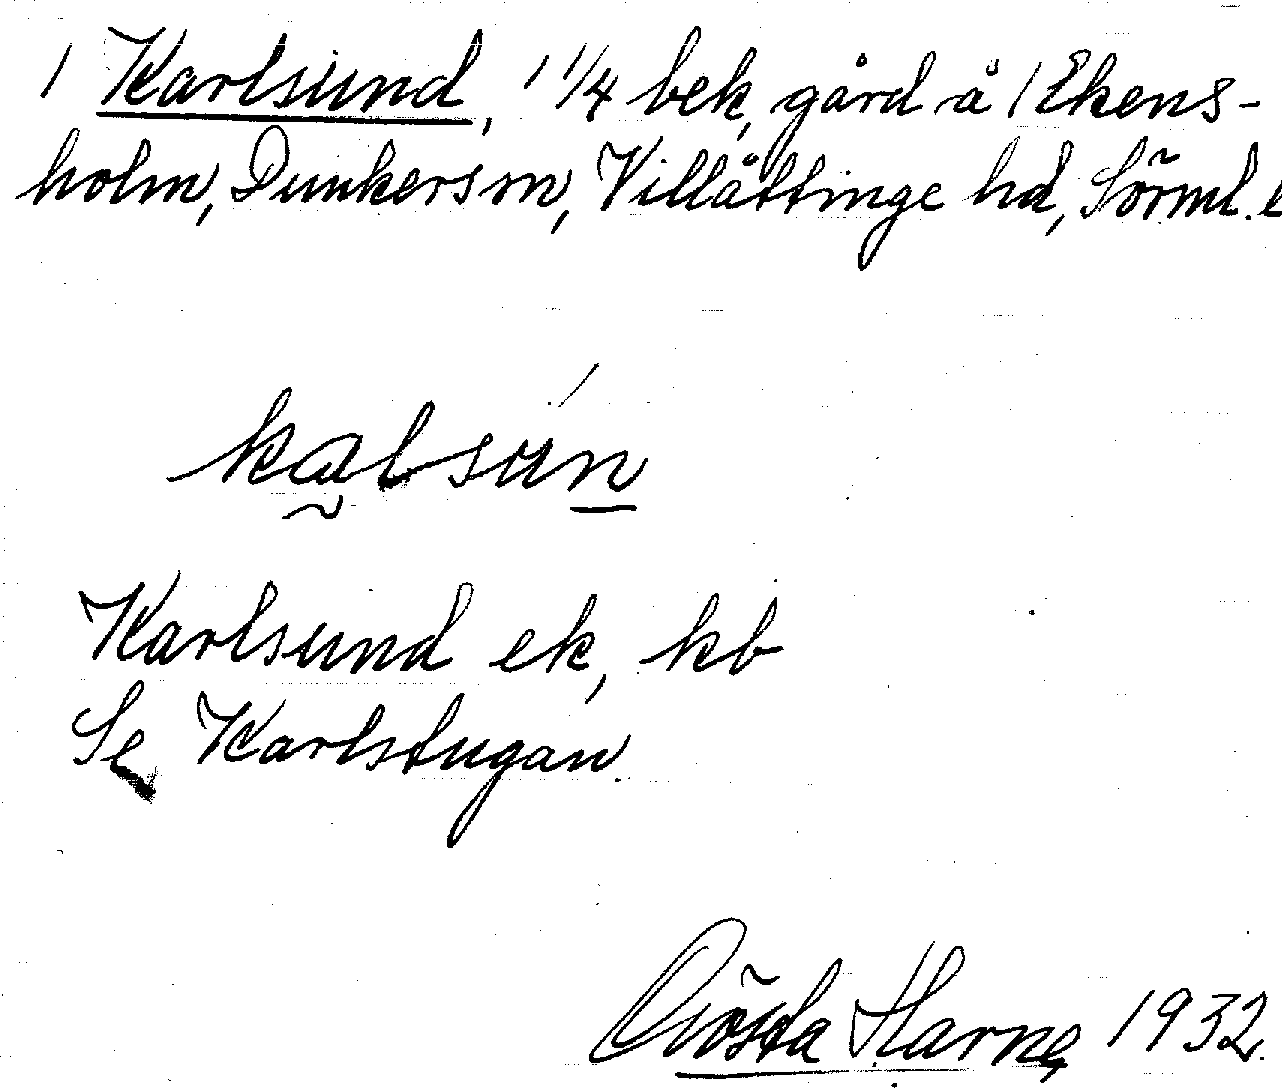 1 Karlsund, 1 1/4 bek, gård å 1 Ekens-
holm, Dunkers sn, Villåttinge hd, Sörml. l
kalsún
Karlsund ek, kb
Se Karlstugan.
Gösta Harne 1932.